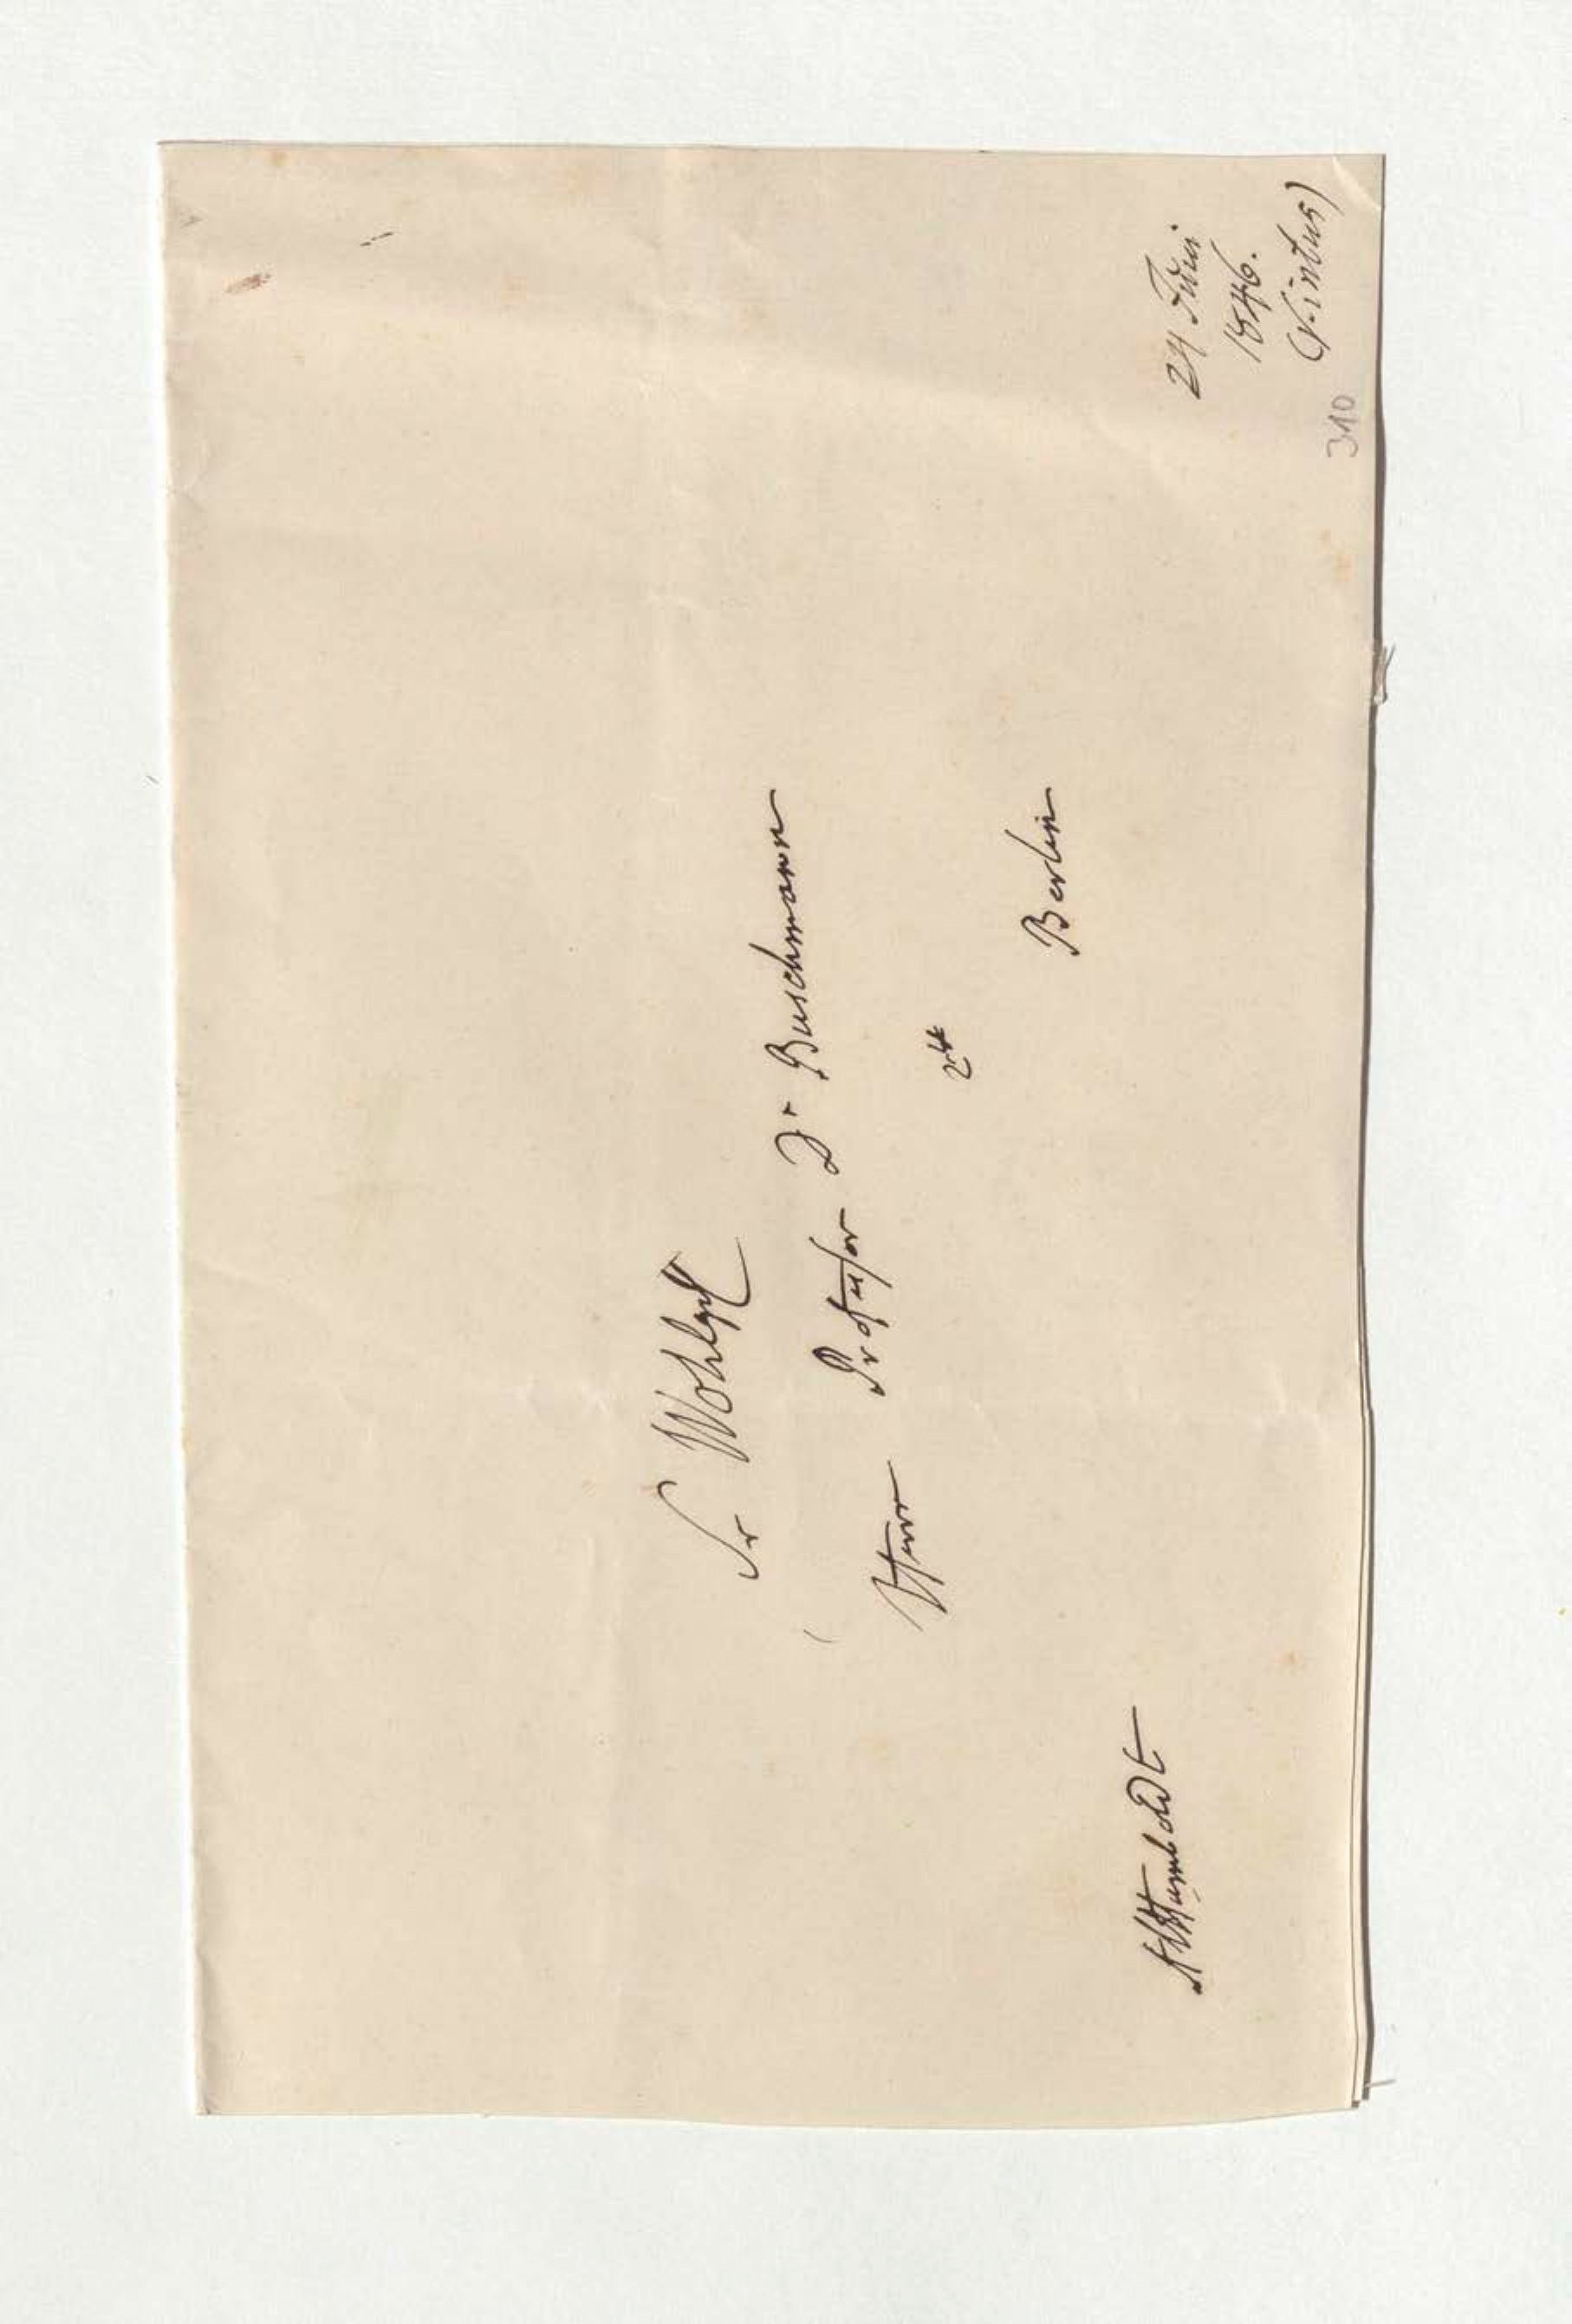 Sr Wohlgb
Herr Professor Dr Buschmann
Berlin
AlHumboldt
24 Juni
1846.
310